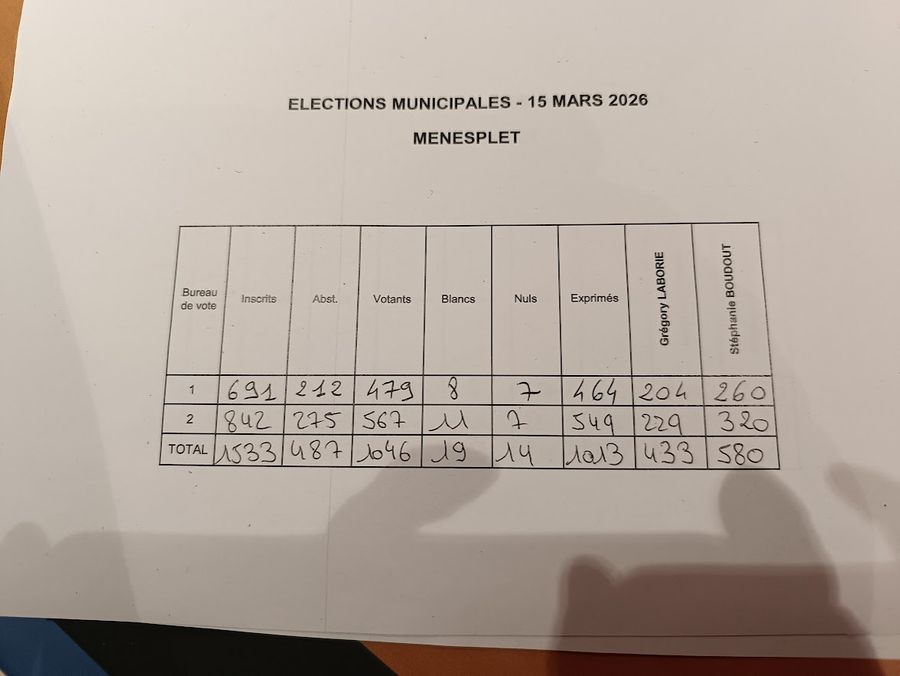 ELECTIONS MUNICIPALES - 15 MARS 2026
MENESPLET
Bureau de vote Inscrits Abst. Votants Blancs Nuls Exprimés Grégory LABORIE Stéphanie BOUDOUT
1 691 212 479 8 7 464 204 260
2 842 275 567 11 7 549 229 320
TOTAL 1533 487 1046 19 14 1013 433 580